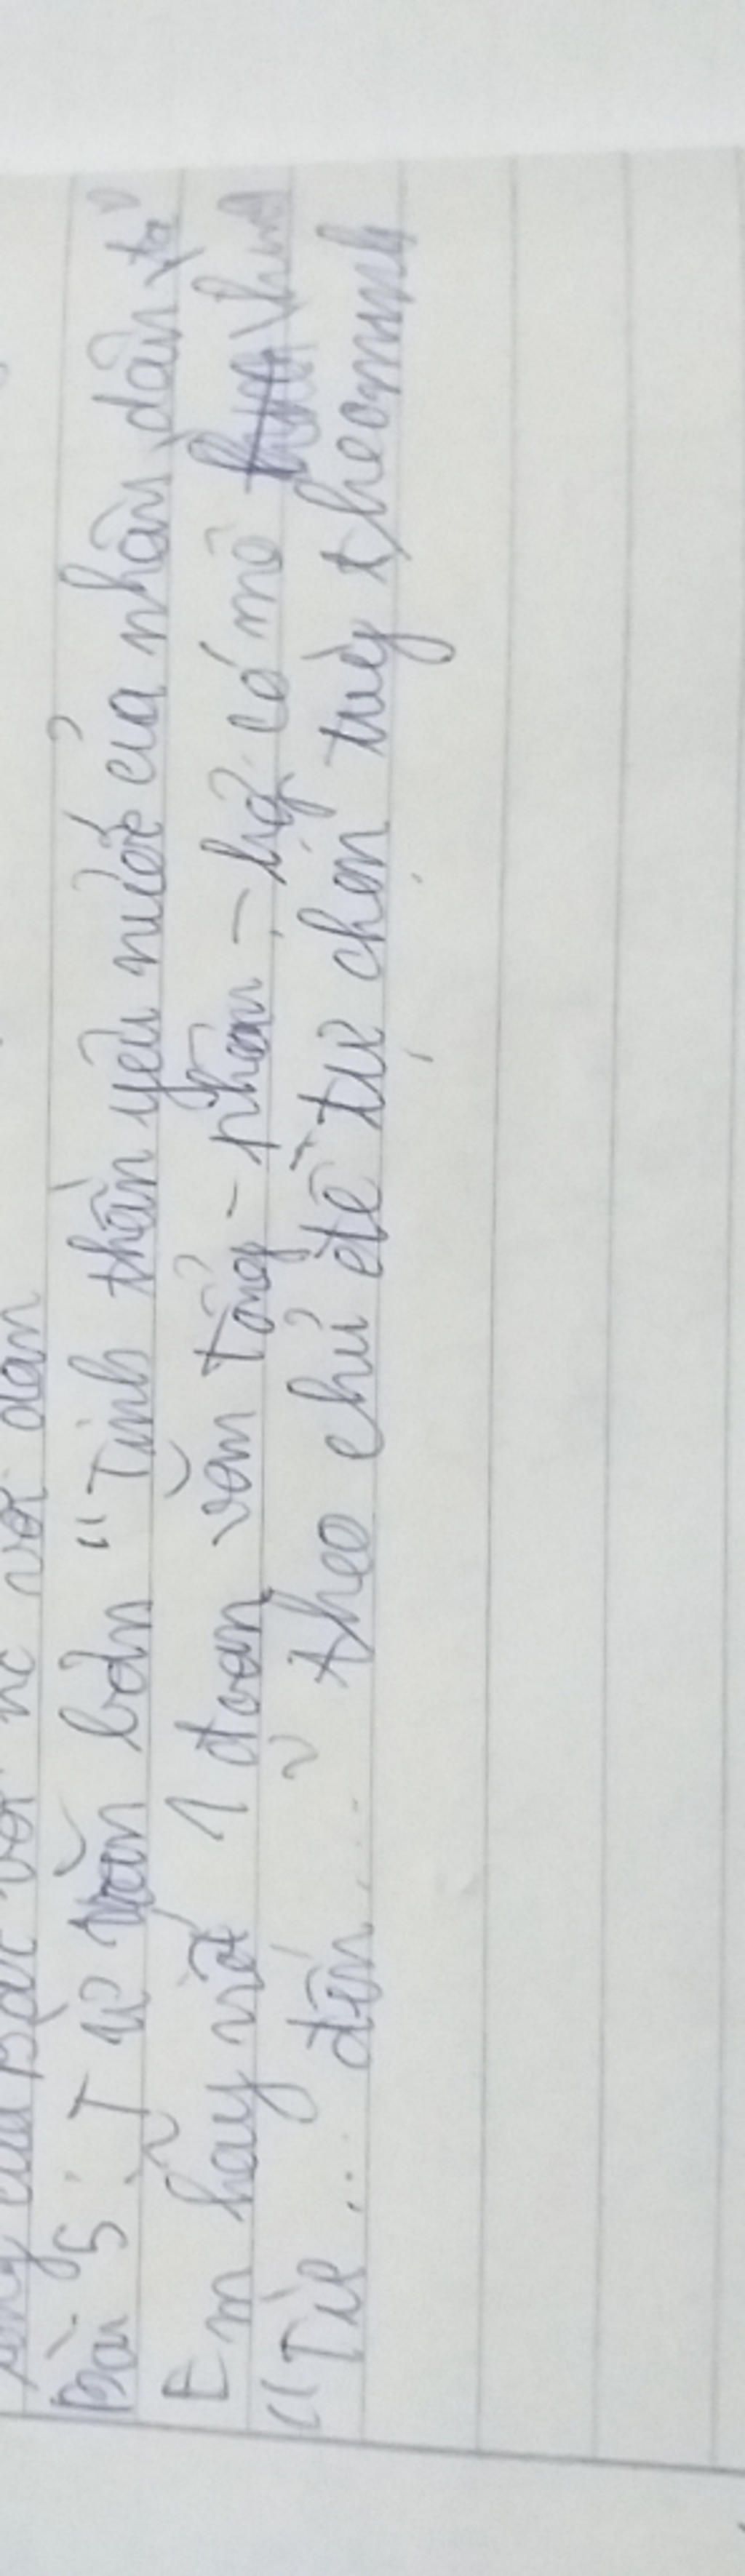 với nc với dân
Bài 5: Từ văn bản "Tinh thần yêu nước của nhân dân ta"
Em hãy viết 1 đoạn văn tổng - phân - hợp có mô hình
"Từ... đến..." theo chủ đề tự chọn tuỳ theo mình